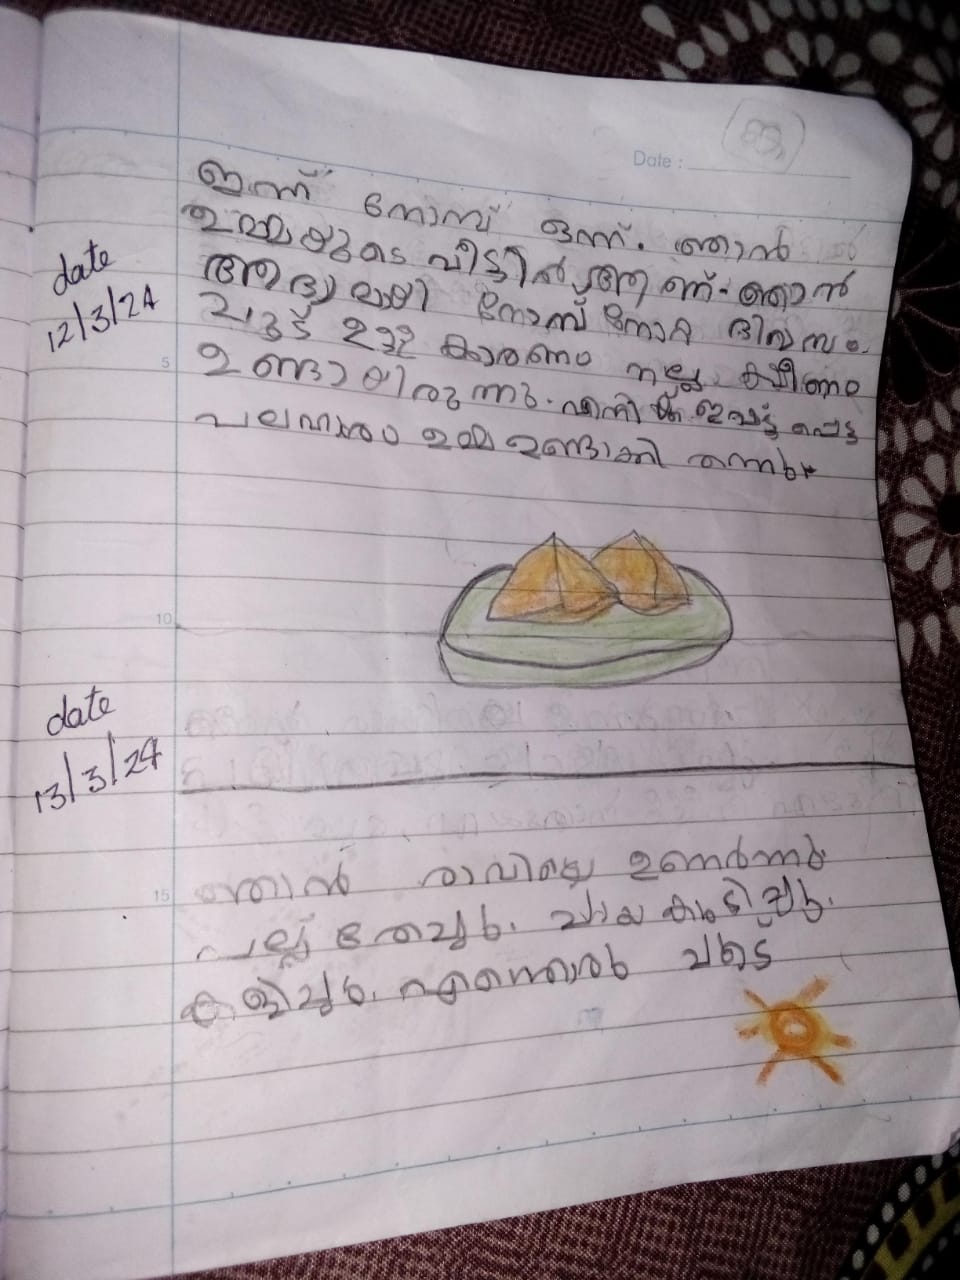 Date :
date
12/3/24
ഇന്ന് നോമ്പ് ഒന്ന്. ഞാൻ
ഉമ്മയുടെ വീട്ടിൽ ആണ്. ഞാൻ
ആദ്യമായി നോമ്പ് നോറ്റ ദിവസം.
ചൂട് ഉള്ള കാരണം നല്ല ക്ഷീണം
5
ഉണ്ടായിരുന്നു. എനിക്ക് ഇഷ്ടപ്പെട്ട
പലഹാരം ഉമ്മ ഉണ്ടാക്കി തന്നു.
10
date
13/3/24
ഞാൻ രാവിലെ ഉണർന്നു.
15
പല്ല് തേച്ചു. ചായ കുടിച്ചു.
കളിച്ചു. എന്തൊരു ചൂട്